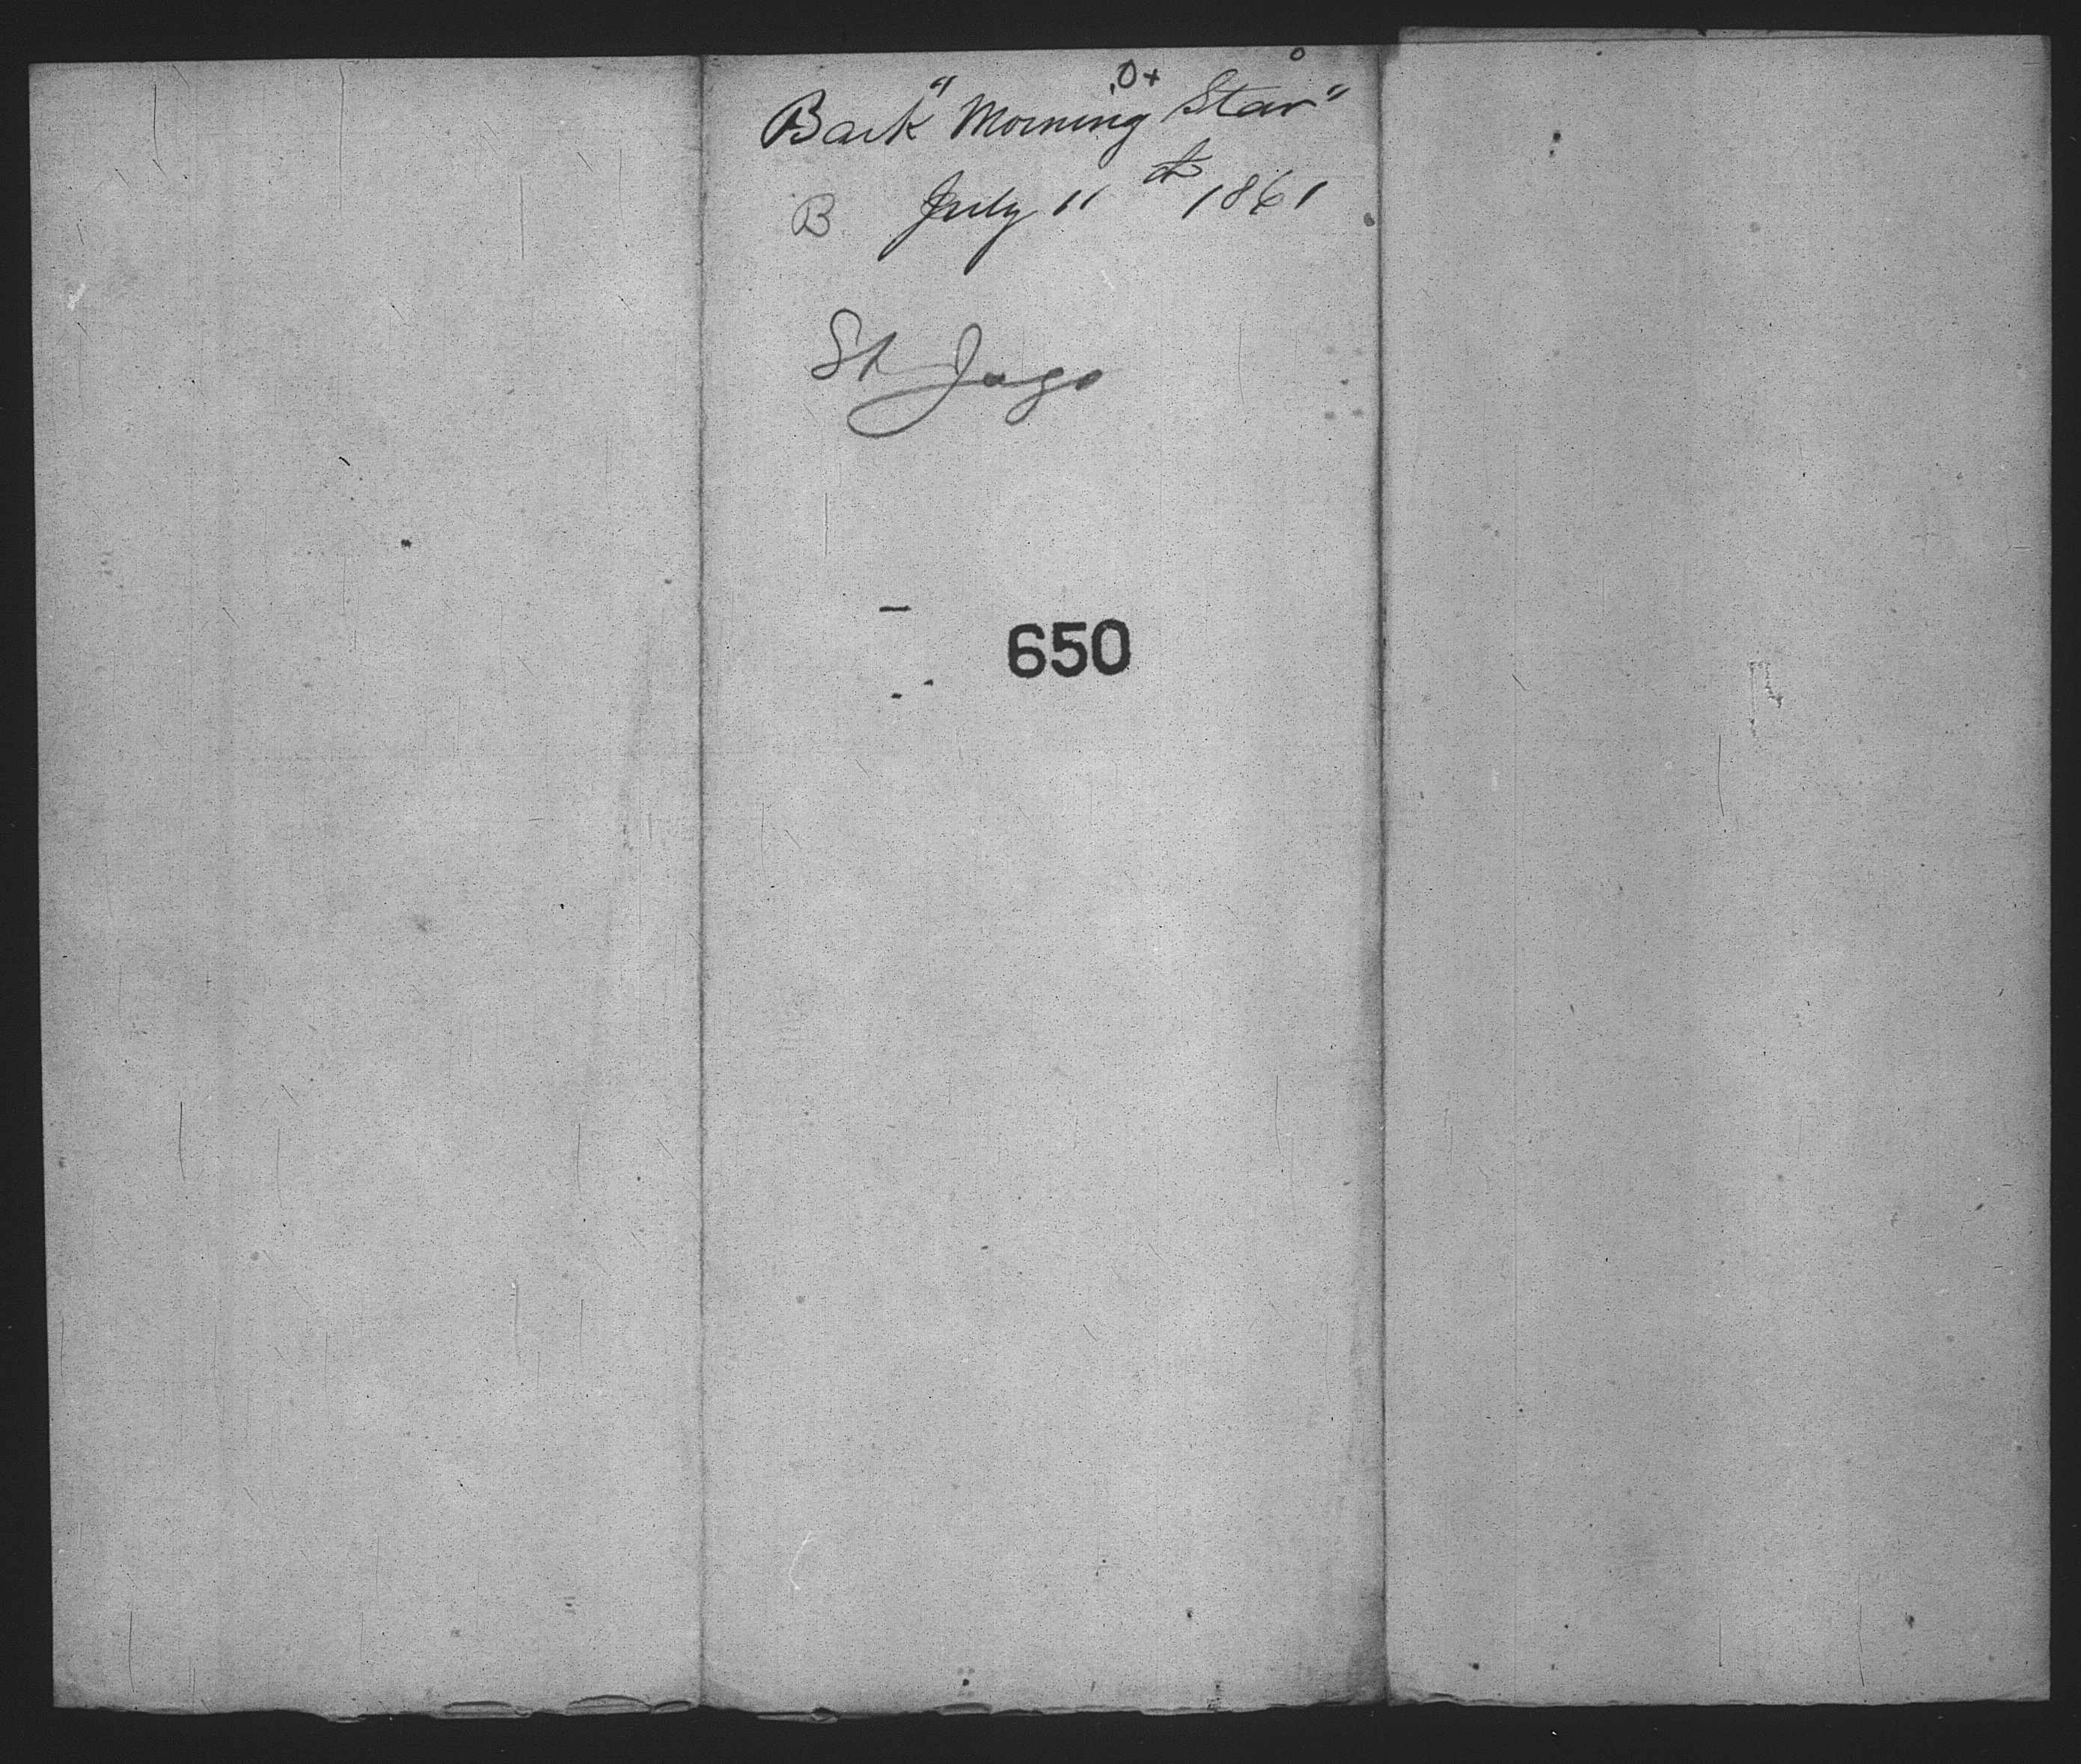 Bark "Morning Star"
B July 11th 1861
St Jago
650